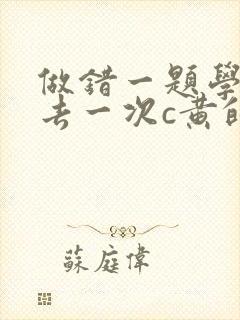 做錯一題學
去一次c黄的
蘇庭偉